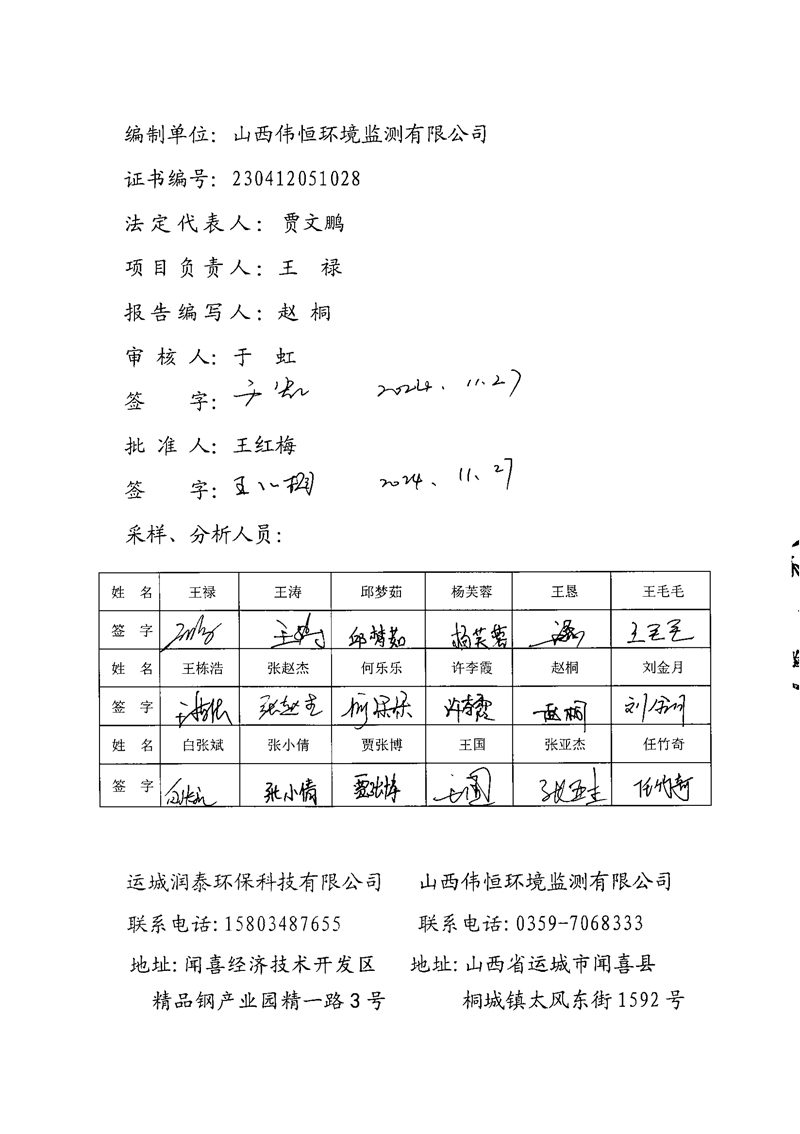 编制单位：山西伟恒环境监测有限公司
证书编号：230412051028
法定代表人：贾文鹏
项目负责人：王 禄
报告编写人：赵 桐
审 核 人：于 虹
签 字：于虹 2024.11.27
批 准 人：王红梅
签 字：王红梅 2024.11.27
采样、分析人员：
姓 名 王禄 王涛 邱梦茹 杨芙蓉 王恳 王毛毛
签 字 王涛 邱梦茹 杨芙蓉 王毛毛
姓 名 王栋浩 张赵杰 何乐乐 许李霞 赵桐 刘金月
签 字 王栋浩 张赵杰 何乐乐 许李霞 赵桐 刘金月
姓 名 白张斌 张小倩 贾张博 王国 张亚杰 任竹奇
签 字 张小倩 贾张博 王国 张亚杰 任竹奇
运城润泰环保科技有限公司 山西伟恒环境监测有限公司
联系电话：15803487655 联系电话：0359-7068333
地址：闻喜经济技术开发区 地址：山西省运城市闻喜县
精品钢产业园精一路 3 号 桐城镇太风东街 1592 号